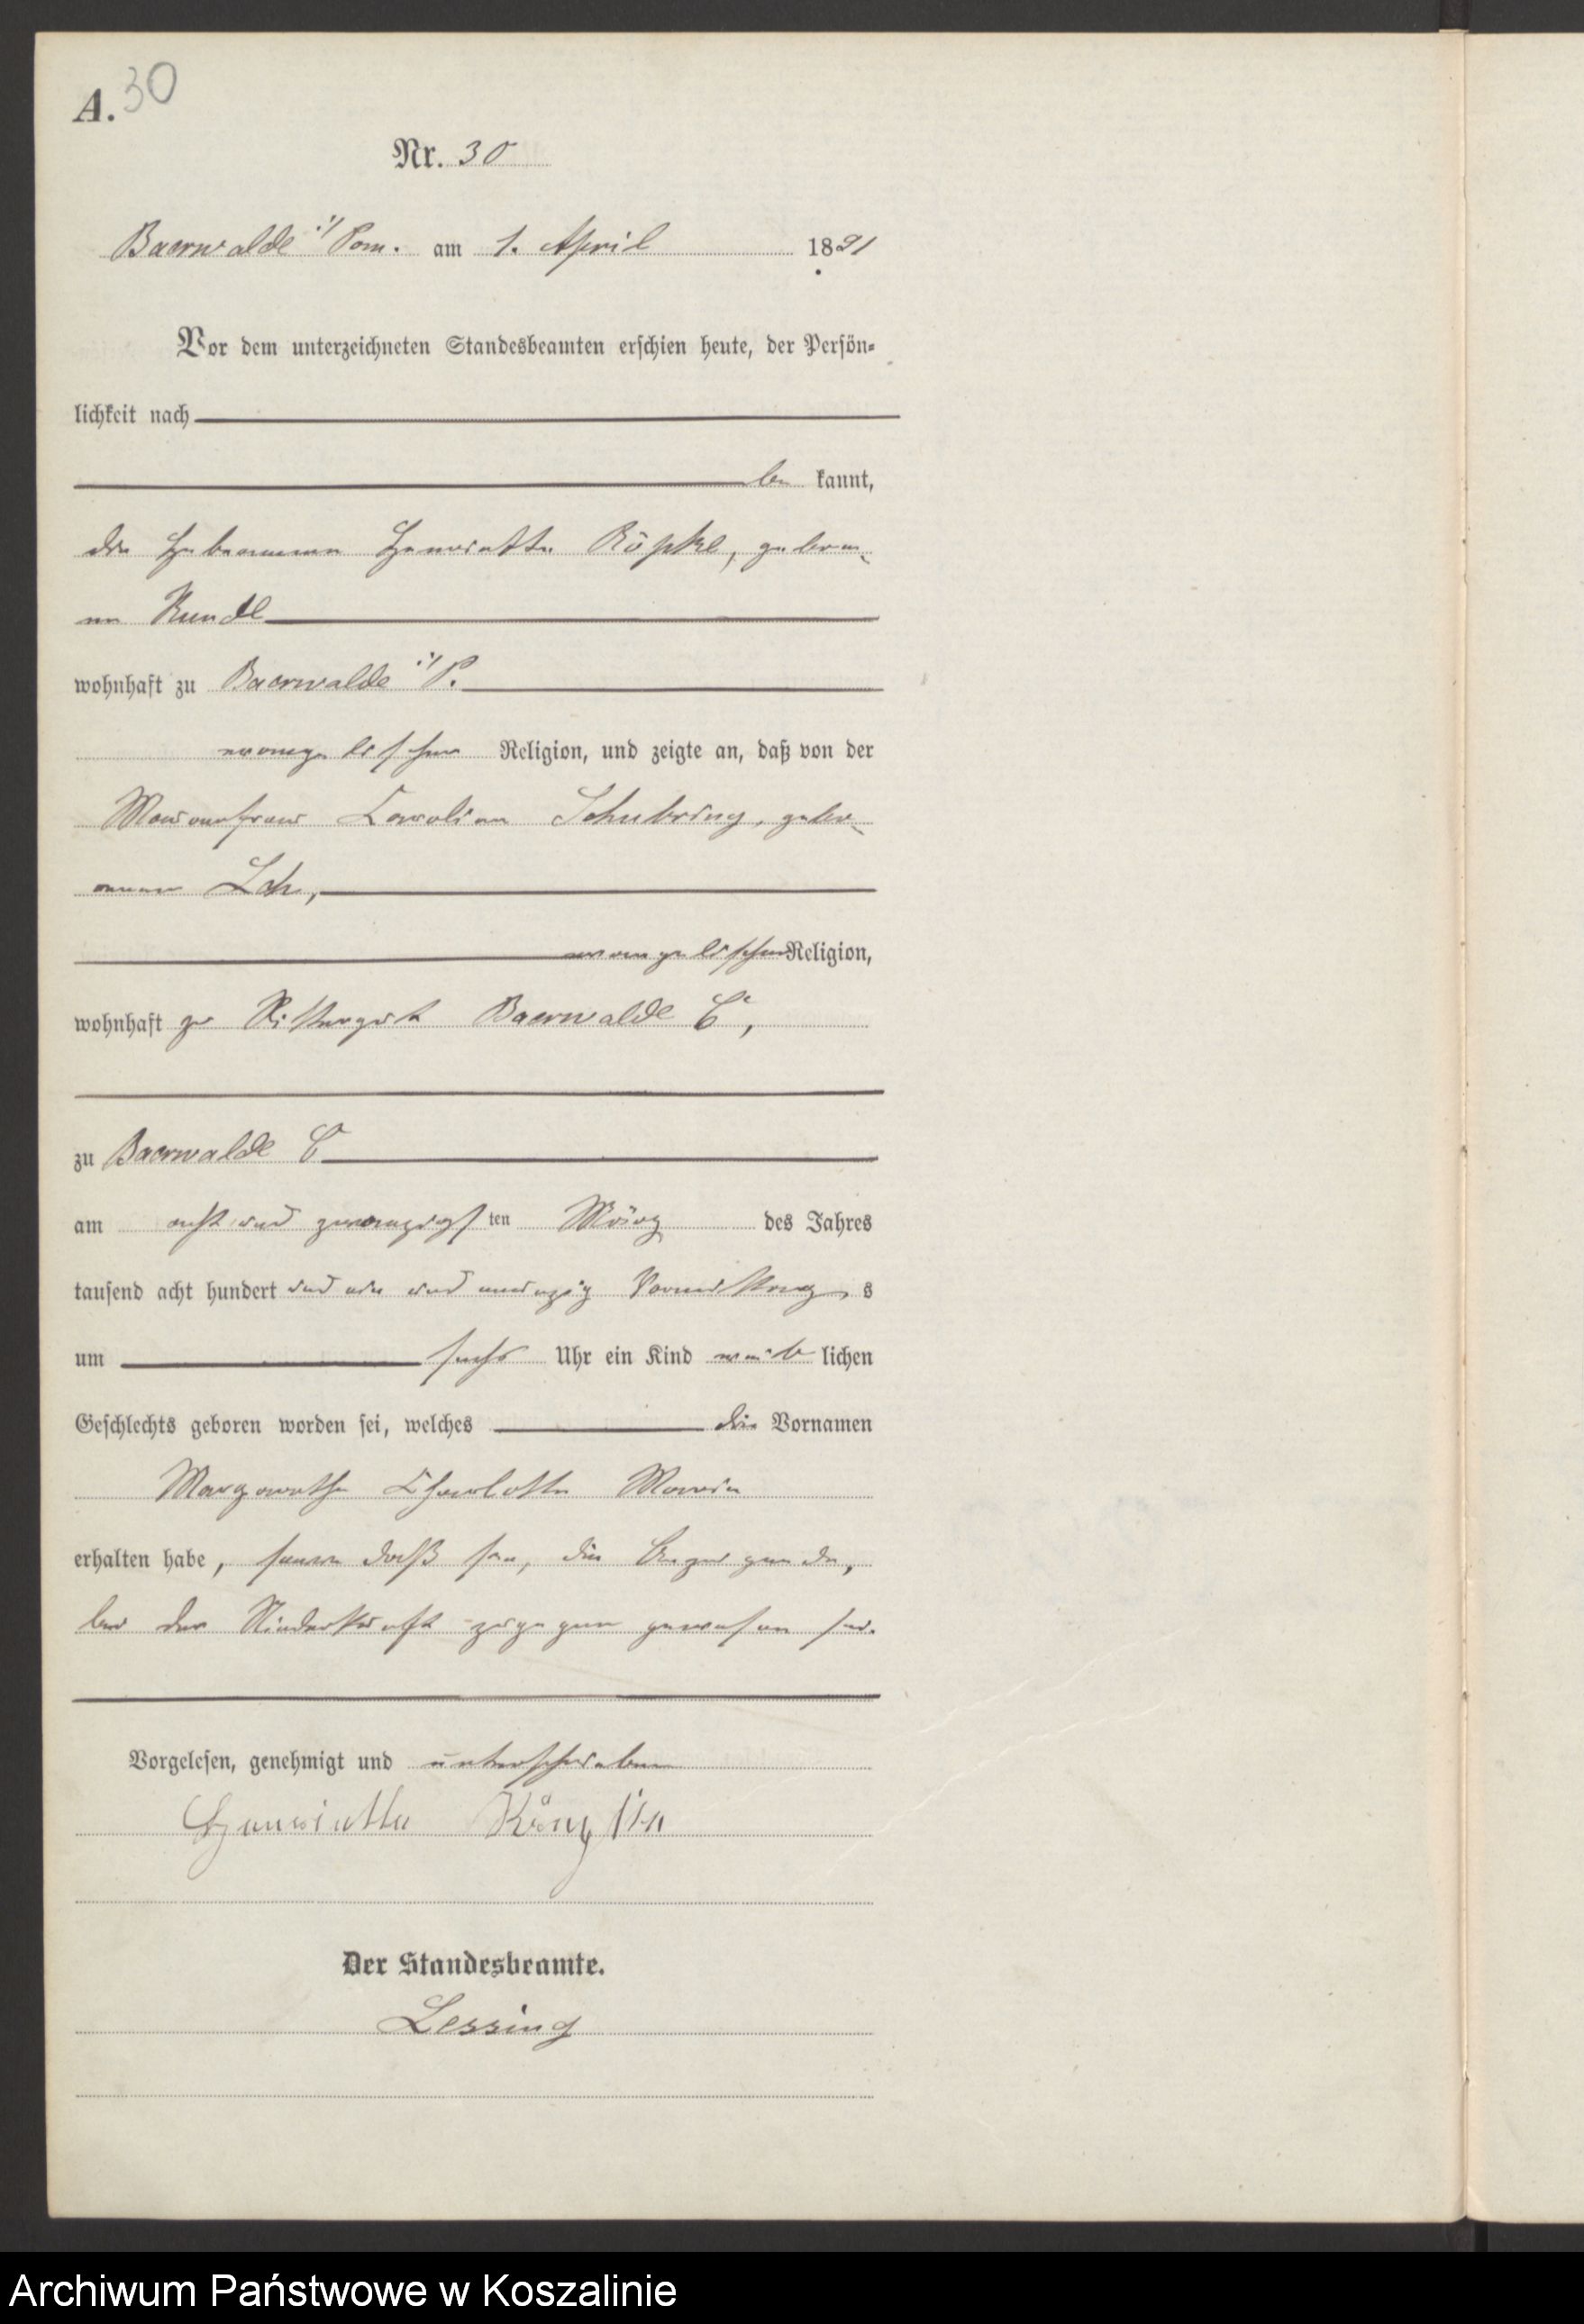 A. 30
Nr. 30
Baerwalde i/ Pom. am 1. April 1891
Vor dem unterzeichneten Standesbeamten erschien heute, der Persön-
lichkeit nach
be kannt,
die Hebamme Henriette Röpke, gebore-
ne
wohnhaft zu Baerwalde i/ P.
evangelischer Religion, und zeigte an, daß von der
Maurerfrau Caroline Schubring, gebor-
enen
evangelischer Religion,
wohnhaft zu Rittergut Baerwalde C,
zu Baerwalde C
am acht und zwanzigsten März des Jahres
tausend acht hundert und ein und neunzig Vormittags
um sechs Uhr ein Kind weiblichen
Geschlechts geboren worden sei, welches die Vornamen
Margarethe Charlotte Marie
erhalten habe, ferner daß sie, die Anzeigende,
bei der Niederkunft zugegen gewesen sei.
Vorgelesen, genehmigt und unterschrieben
Henriette
Der Standesbeamte.
Lessing
Archiwum Państwowe w Koszalinie